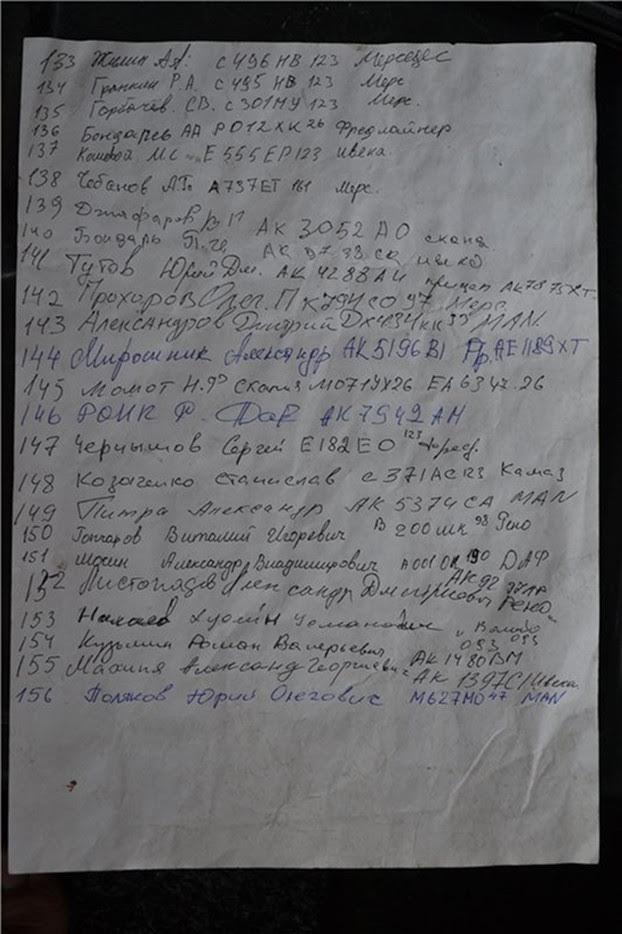 133 Жилин А.А. С 496 НВ 123 Мерседес
134 Гранкин Р.А. С 495 НВ 123 Мерс
135 Горбачев. С.В. С 301 МУ 123 Мерс.
136 Бондарев АА Р012ХК26 Фредлайнер
137 Кошевой МС Е 555 ЕР 123 ивека
138 Чебанов А.Г. А737ЕТ 161 Мерс.
139 Джафаров В П АК 3052 АО скания
140 Бондарь П. АК СК ивеко
141 Тутов Юрий Дм. АК 4288АИ прицеп АК7875ХТ
142 Прохоров Олег. П К794СО 97 Мерс
143 Александров Дмитрий MAN
144 Мирошник Александр АК5196ВІ Пр. АЕ1189ХТ
145 Момот Н.Я М071УХ26 ЕА6347.26
146 РОИК Ф. Даф АК7942АН
147 Чернышов Сергей Е182ЕО 123
148 Козаченко Станислав С371АС123 Камаз
149 Питра Александр АК 5374СА MAN
150 Гончаров Виталий Игоревич В 200 МК 98 Рено
151 Александр Владимирович А001ОК 190 DАФ
152 Листопадов Александр Дмитриевич АК92 Рено
153 "Вольво 093
154 Кузьмин Роман Валерьевич АК1480ВМ
155 Александр Георгиевич АК 1397СІ Ивека
156 Поляков Юрий Олегович М627МО 47 MAN